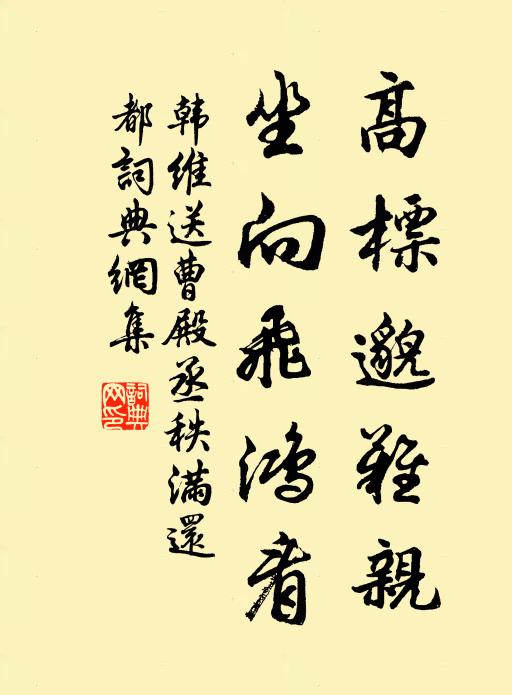 高標邈難親
坐向飛鴻看
韩維送曹殿丞秩滿還
都詞典網集
詞典网印